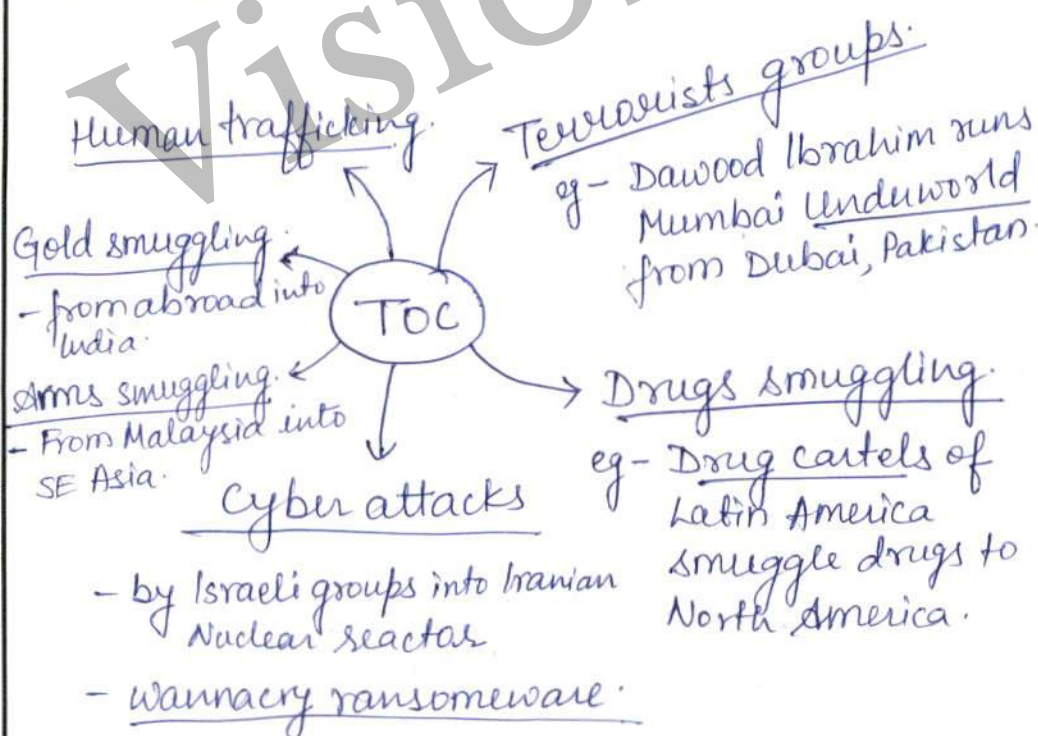 Vision
Human trafficking.
Terrorists groups.
eg - Dawood Ibrahim runs
Mumbai Underworld
from Dubai, Pakistan.
Gold smuggling.
- from abroad into
India.
TOC
Arms smuggling.
- From Malaysia into
SE Asia.
Drugs smuggling.
eg - Drug cartels of
Latin America
smuggle drugs to
North America.
Cyber attacks
- by Israeli groups into Iranian
Nuclear reactor
- wannacry ransomeware.